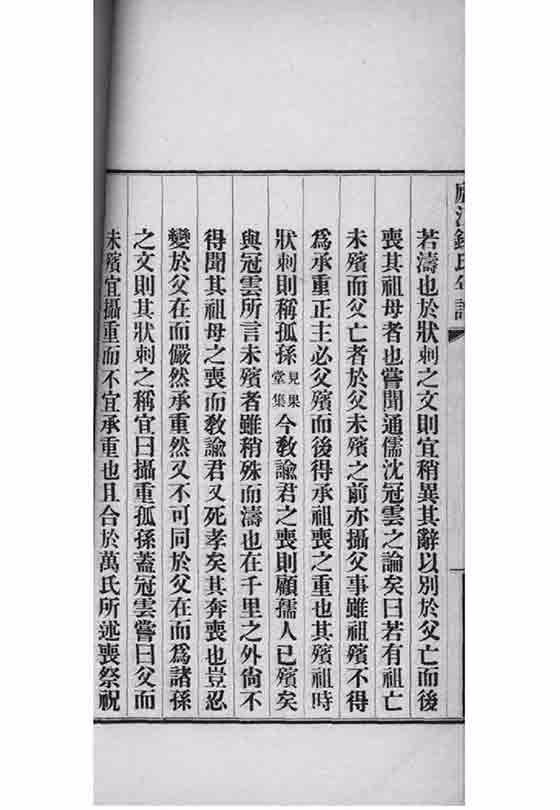 廬江錢氏年譜
若濤也於狀刺之文則宜稍異其辭以別於父亡而後
喪其祖母者也嘗聞通儒沈冠雲之論矣曰若有祖亡
未殯而父亡者於父未殯之前亦攝父事雖祖殯不得
爲承重正主必父殯而後得承祖喪之重也其殯祖時
狀刺則稱孤孫見果堂集今敎諭君之喪則顧孺人已殯矣
與冠雲所言未殯者雖稍殊而濤也在千里之外尙不
得聞其祖母之喪而敎諭君又死孝矣其奔喪也豈忍
變於父在而儼然承重然又不可同於父在而爲諸孫
之文則其狀刺之稱宜曰攝重孤孫蓋冠雲嘗曰父而
未殯宜攝重而不宜承重也且合於萬氏所述喪祭祝